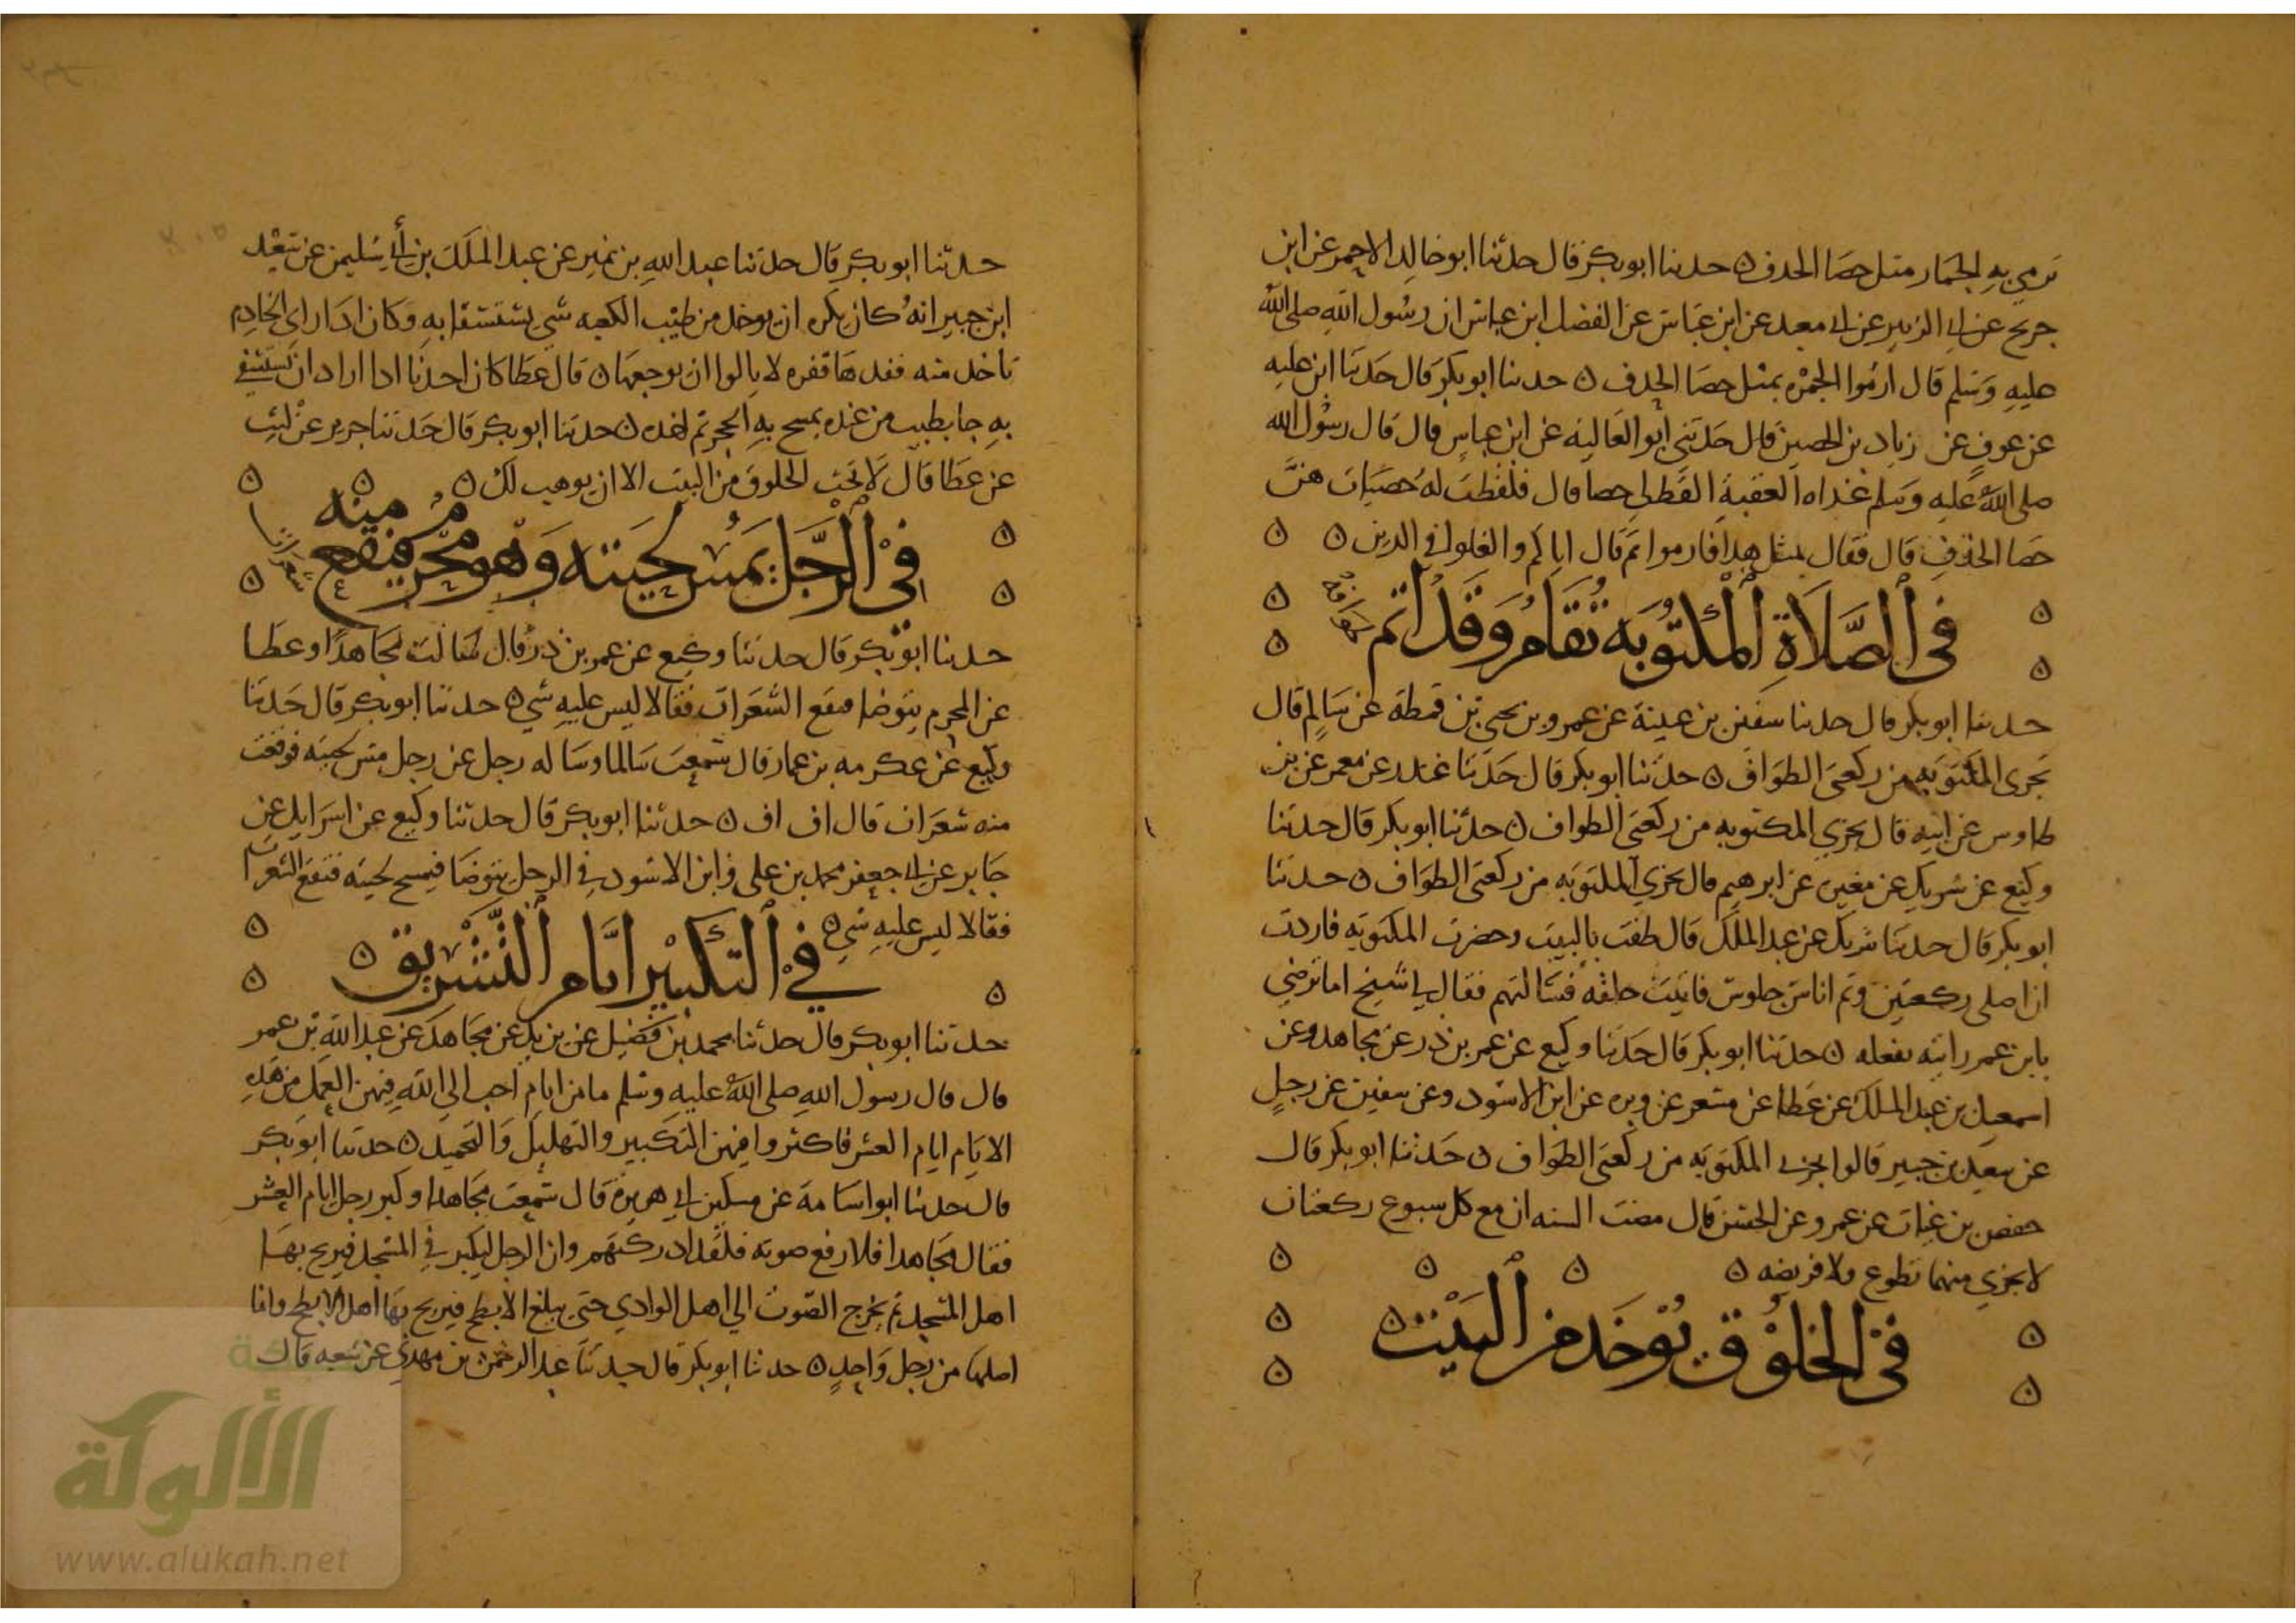 نرمي به الجمار مثل حصا الخذف ه حدثنا ابو بكر قال حدثنا ابو خالد الاحمر عن ابن
جريج عن ابي الزبير عن ابي معبد عن ابن عباس عن الفضل ابن عباس ان رسول الله صلى الله
عليه وسلم قال ارموا الجمره بمثل حصا الخذف ه حدثنا ابو بكر قال حدثنا ابن عليه
عن عوف عن زياد بن الحصين قال حدثني ابو العاليه عن ابن عباس قال قال رسول الله
صلى الله عليه وسلم غداه العقبة القط لي حصا قال فلقطت له حصيات هن
حصا الخذف قال فقال بمثل هذا فارموا ثم قال اياكم والغلو في الدين ه
في الصلاة المكتوبه تقام وقد اتم طوافه
حدثنا ابو بكر قال حدثنا سفين بن عيينة عن عمرو بن يحيى بن قمطة عن سالم قال
تجزي المكتوبه من ركعتي الطواف ه حدثنا ابو بكر قال حدثنا غندر عن معمر عن بن
طاوس عن ابيه قال تجزي المكتوبه من ركعتي الطواف ه حدثنا ابو بكر قال حدثنا
وكيع عن شريك عن مغيره عن ابرهيم قال تجزي المكتوبه من ركعتي الطواف ه حدثنا
ابو بكر قال حدثنا شريك عن عبد الملك قال طفت بالبيت وحضرت المكتوبه فاردت
ان اصلي ركعتين وثم اناس جلوس فاتيت حلقه فسالتهم فقال لي شيخ اما ترضى
بابن عمر رايته يفعله ه حدثنا ابو بكر قال حدثنا وكيع عن عمر بن ذر عن مجاهد وعن
اسمعيل بن عبد الملك عن عطا عن مسعر عن وبره عن ابن الاسود وعن سفين عن رجل
عن سعيد بن جبير قالوا تجزي المكتوبه من ركعتي الطواف ه حدثنا ابو بكر قال
حفص بن غياث عن عمرو عن الحسن قال مضت السنه ان مع كل سبوع ركعتان
لا يجزي منهما تطوع ولا فريضه ه
في الخلوق يوخذ من البيت
حدثنا ابو بكر قال حدثنا عبد الله بن نمير عن عبد الملك بن ابي سليمن عن سعيد
ابن جبير انه كان يكره ان يوخذ من طيب الكعبه شي يستشفا به وكان اذا راى الخادم
تاخذ منه لا يالوا ان يوجعها ه قال عطا كان احدنا اذا اراد ان يستشفي
به جا بطيب من عنده يمسح به الحجر ثم اخذه ه حدثنا ابو بكر قال حدثنا جرير عن ليث
عن عطا قال الخلوق من البيت الا ان يوهب لك ه
في الرجل يمس لحيته وهو محرم فيقع منه شعرات
حدثنا ابو بكر قال حدثنا وكيع عن عمر بن ذر قال سالت مجاهدا وعطا
عن المحرم يتوضا فيقع الشعرات فقالا ليس عليه شي ه حدثنا ابو بكر قال حدثنا
وكيع عن عكرمه بن عمار قال سمعت سالما وساله رجل عن رجل مس لحيته فوقعت
منه شعرات قال اف اف ه حدثنا ابو بكر قال حدثنا وكيع عن اسرايل عن
جابر عن ابي جعفر محمد بن علي وابن الاسود في الرجل يتوضا فيمسح لحيته فتقع الشعرات
فقالا ليس عليه شي ه
في التكبير ايام التشريق
حدثنا ابو بكر قال حدثنا محمد بن فضيل عن يزيد عن مجاهد عن عبد الله بن عمر
قال قال رسول الله صلى الله عليه وسلم ما من ايام احب الي الله فيهن العمل من هذه
الايام ايام العشر فاكثروا فيهن التكبير والتهليل والتحميد ه حدثنا ابو بكر
قال حدثنا ابو اسامة عن مسكين ابي هريرة قال سمعت مجاهدا وكبر رجل ايام العشر
فقال مجاهد افلا رفع صوته فلقد ادركتهم وان الرجل ليكبر في المسجد فيرتج بها
اهل المسجد ثم يخرج الصوت الي اهل الوادي حتى يبلغ الابطح فيرتج بها اهل الابطح وانما
اصلها من رجل واحد ه حدثنا ابو بكر قال حدثنا عبد الرحمن بن مهدي عن شعبه قال
الألوكة
www.alukah.net